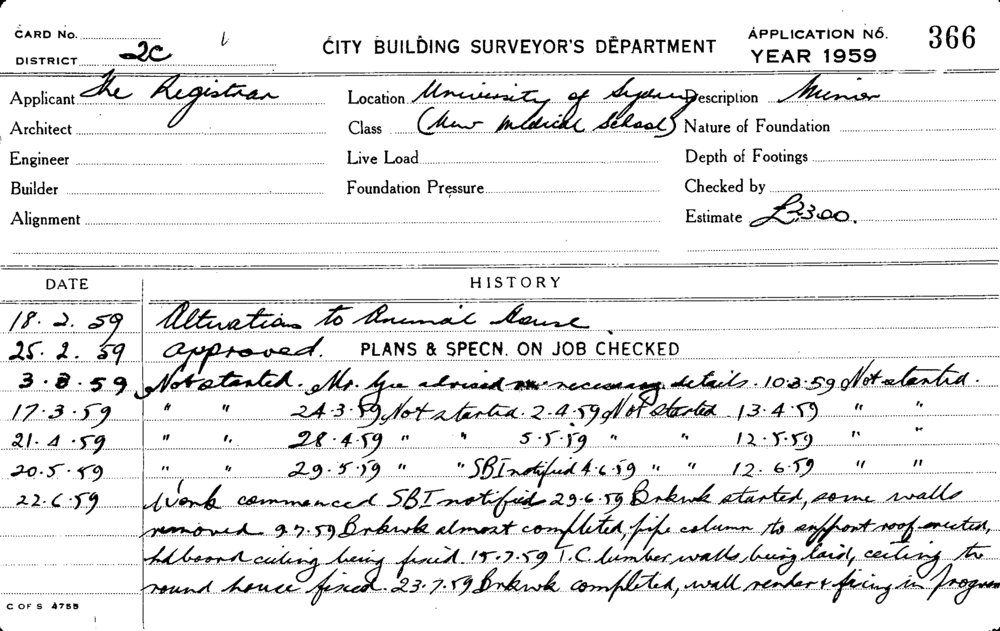 CARD No.
DISTRICT 2C
CITY BUILDING SURVEYOR'S DEPARTMENT
APPLICATION No. 366
YEAR 1959
Applicant The Registrar Location University of Sydney Description Minor
Architect Class (New Medical School) Nature of Foundation
Engineer Live Load Depth of Footings
Builder Foundation Pressure Checked by
Alignment Estimate £2,300.
DATE HISTORY
18.2.59 Alterations to Animal House
25.2.59 Approved. PLANS & SPECN. ON JOB CHECKED
3.3.59 Not started. Mr. advised necessary details. 10.3.59 Not started.
17.3.59 " " 24.3.59 Not started. 2.4.59 Not started 13.4.59 " "
21.4.59 " " 28.4.59 " " 5.5.59 " " 12.5.59 " "
20.5.59 " " 29.5.59 " " SBI notified 4.6.59 " " 12.6.59 " "
22.6.59 Work commenced SBI notified 29.6.59 Brkwk started, some walls
removed 9.7.59 Brkwk almost completed, pipe column to support roof erected,
hdboard ceiling being fixed. 15.7.59 T.C lumber walls being laid, ceiling to
round house fixed. 23.7.59 Brkwk completed, wall render & fixing in progress
C OF S 4755